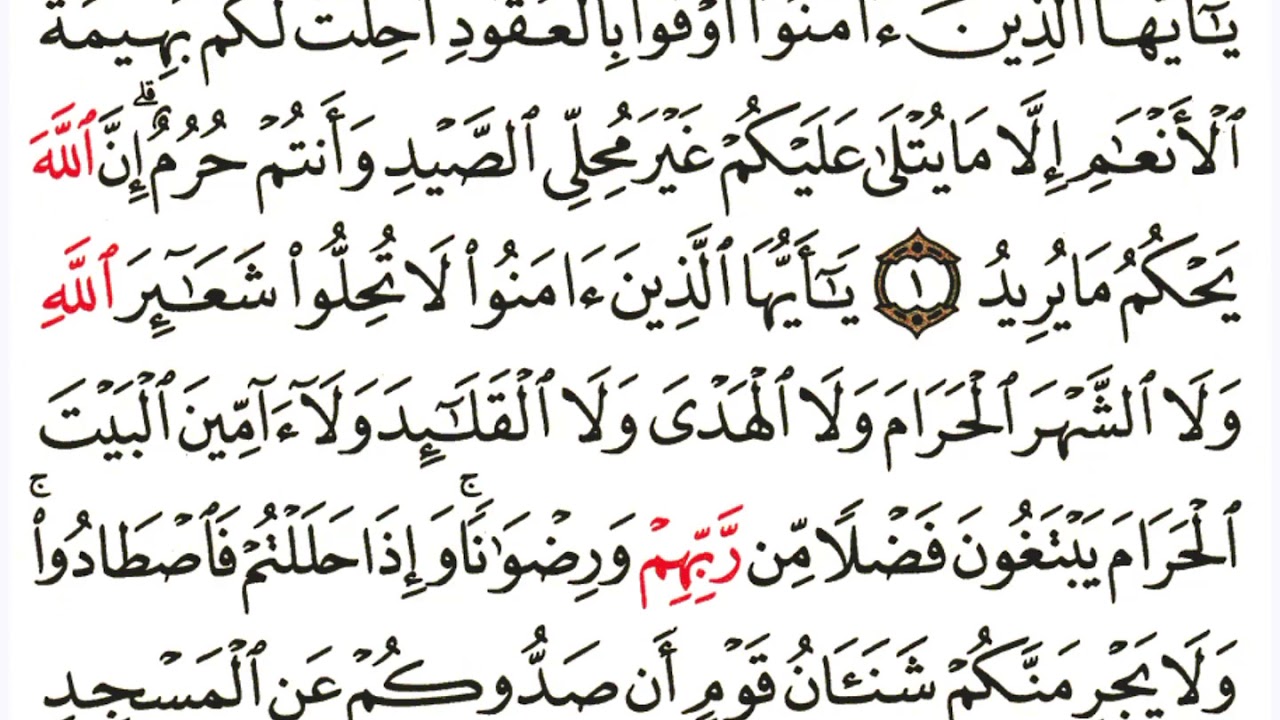 يَٰٓأَيُّهَا ٱلَّذِينَ ءَامَنُوٓا۟ أَوْفُوا۟ بِٱلْعُقُودِ أُحِلَّتْ لَكُم بَهِيمَةُ
ٱلْأَنْعَٰمِ إِلَّا مَا يُتْلَىٰ عَلَيْكُمْ غَيْرَ مُحِلِّى ٱلصَّيْدِ وَأَنتُمْ حُرُمٌ ۗ إِنَّ ٱللَّهَ
يَحْكُمُ مَا يُرِيدُ ١ يَٰٓأَيُّهَا ٱلَّذِينَ ءَامَنُوا۟ لَا تُحِلُّوا۟ شَعَٰٓئِرَ ٱللَّهِ
وَلَا ٱلشَّهْرَ ٱلْحَرَامَ وَلَا ٱلْهَدْىَ وَلَا ٱلْقَلَٰٓئِدَ وَلَآ ءَآمِّينَ ٱلْبَيْتَ
ٱلْحَرَامَ يَبْتَغُونَ فَضْلًا مِّن رَّبِّهِمْ وَرِضْوَٰنًا ۚ وَإِذَا حَلَلْتُمْ فَٱصْطَادُوا۟ ۚ
وَلَا يَجْرِمَنَّكُمْ شَنَـَٔانُ قَوْمٍ أَن صَدُّوكُمْ عَنِ ٱلْمَسْجِدِ